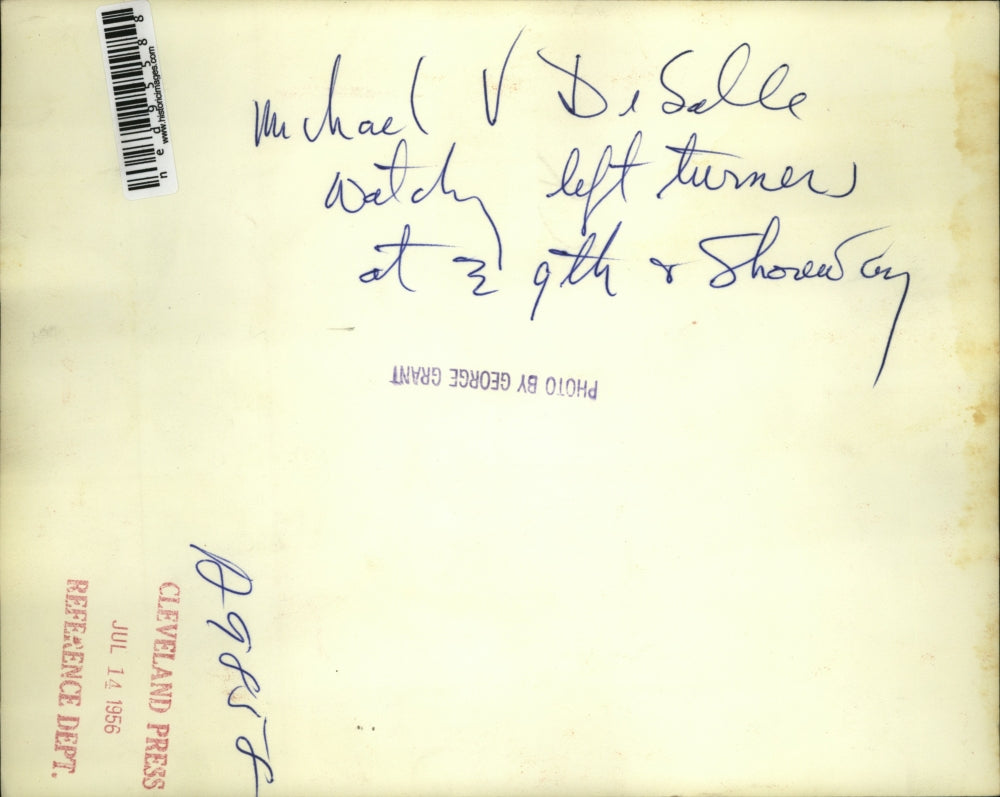 Michael V DiSalle
watchy left turners
at E 9th & Shoreway
PHOTO BY GEORGE GRANT
CLEVELAND PRESS
JUL 14 1956
REFERENCE DEPT.
ned95588
www.historicimages.com